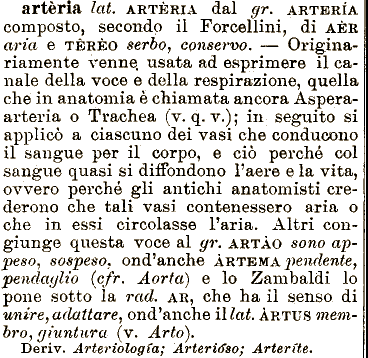 artèria lat. ARTÈRIA dal gr. ARTERÍA
composto, secondo il Forcellini, di AÈR
aria e TÈRÈO serbo, conservo. — Origina-
riamente venne usata ad esprimere il ca-
nale della voce e della respirazione, quella
che in anatomia è chiamata ancora Aspera-
arteria o Trachea (v. q. v.); in seguito si
applicò a ciascuno dei vasi che conducono
il sangue per il corpo, e ciò perché col
sangue quasi si diffondono l'aere e la vita,
ovvero perché gli antichi anatomisti cre-
derono che tali vasi contenessero aria o
che in essi circolasse l'aria. Altri con-
giunge questa voce al gr. ARTÀO sono ap-
peso, sospeso, ond'anche ÀRTEMA pendente,
pendaglio (cfr. Aorta) e lo Zambaldi lo
pone sotto la rad. AR, che ha il senso di
unire, adattare, ond'anche il lat. ÀRTUS mem-
bro, giuntura (v. Arto).
Deriv. Arteriología; Arterióso; Arteríte.